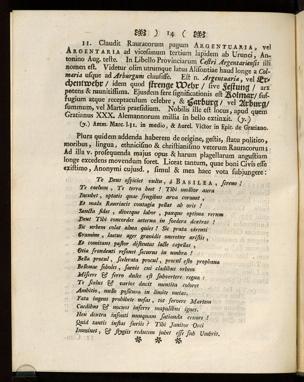 14
11. Claudit Rauracorum pagum ARGENTUARIA, vel
ARGENTARIA ad vicesimum tertium lapidem ab Urunci, An-
tonino Aug. teste. In Libello Provinciarum Castri Argentariensis illi
nomen est. Videtur olim utrumque latus Alisontiae haud longe a Col-
maria usque ad Arburgum clausisse. Est n. Argentuaria, vel Er-
genwehr / idem quod strenge Wehr / sive Festung /
petens & munitissima. Ejusdem fere significationis est Colmar /
fugium atque receptaculum celebre, & Harburg / vel Arburg /
summum, vel Martis praesidium. Nobilis ille est locus, apud quem
Gratianus XXX. Alemannorum millia in bello extinxit. (y.)
(y.) Amm. Marc. 31. in medio, & Aurel. Victor in Epit. de Gratiano.
Plura quidem addenda haberem de origine, gestis, statu politico,
moribus, lingua, ethnicismo & christianismo veterum Rauracorum:
Ad illa v. prosequenda majus opus & harum plagellarum angustiam
longe excedens movendum foret. Liceat tantum, quae boni Civis esse
existimo, Anonymi cujusd. simul & mea haec vota subjungere:
Te Deus efficiat cunctis, o BASILEA, serenum!
Te coelum, Te terra beet! Tibi mollior aura
Incubet, optatis quae frugibus arva coronet:
Et mala Rauriacis contagia pellat ab oris!
Sancta fides, divesque labor, parique optima rerum
Dent Tibi concordes aeternum in foedera dextras!
Sic urbem colat alma quies! Sic prata virenti
Gramine, lactus ager gravidis onoretur aristis;
Et comitans pastor distentas lacte capellas,
Otia secundi securus in umbra!
Bella procul, scelerata procul, procul esto propheana
Bellonae soboles, saevis cui cladibus orbem
Miscere & ferro dulce est subvertere regna!
Te solus & varios docit mentita colores
Ambitio, nullo positura in limite metas,
Fata ingens prohibete nefas, tie fervere Martem
Caedibus & nocuos inferre impulsibus ignes.
Heu dextra infausti nunquam satianda cruore!
Quid tantis instas furiis? Tibi Janitor Orci
Imminet, & stygiis reducem jubet esse sub Umbris.